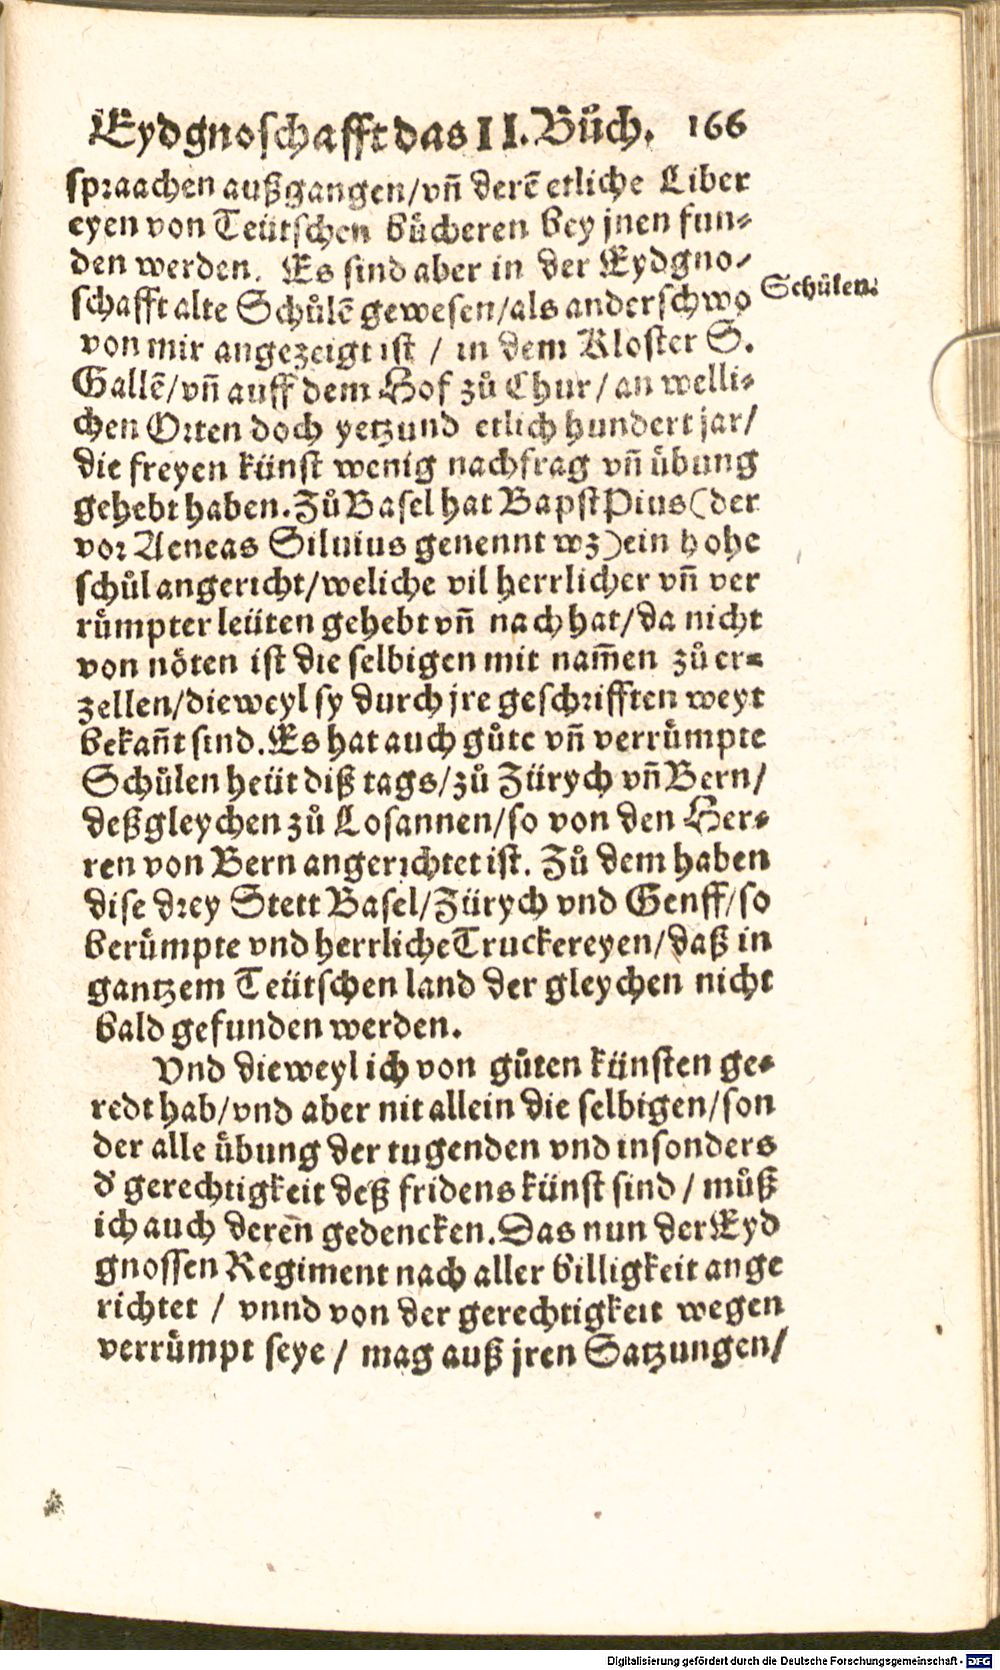 Eydgnoschafft das II. Bůch. 166
spraachen außgangen/vñ derẽ etliche Liber
eyen von Teütschen bücheren bey jnen fun-
den werden. Es sind aber in der Eydgno-
schafft alte Schůlẽ gewesen/als anderschwo
Schůlen.
von mir angezeigt ist / in dem Kloster S.
Gallẽ/vñ auff dem Hof zů Chur/an welli-
chen Orten doch yetzund etlich hundert jar/
die freyen künst wenig nachfrag vñ übung
gehebt haben. Zů Basel hat Bapst Pius (der
vor Aeneas Siluius genennt wz) ein hohe
schůl angericht/weliche vil herrlicher vñ ver
rümpter leüten gehebt vñ nach hat/da nicht
von nöten ist die selbigen mit nam̃en zů er-
zellen/dieweyl sy durch jre geschrifften weyt
bekañt sind. Es hat auch gůte vñ verrümpte
Schůlen heüt diß tags/zů Zürych vñ Bern/
deßgleychen zů Losannen/so von den Her-
ren von Bern angerichtet ist. Zů dem haben
dise drey Stett Basel/Zürych vnd Genff/so
berümpte vnd herrliche Truckereyen/daß in
gantzem Teütschen land der gleychen nicht
bald gefunden werden.
Vnd dieweyl ich von gůten künsten ge-
redt hab/vnd aber nit allein die selbigen/son
der alle übung der tugenden vnd insonders
d' gerechtigkeit deß fridens künst sind / můß
ich auch deren̄ gedencken. Das nun der Eyd
gnossen Regiment nach aller billigkeit ange
richtet / vnnd von der gerechtigkeit wegen
verrümpt seye / mag auß jren Satzungen/
Digitalisierung gefördert durch die Deutsche Forschungsgemeinschaft - DFG